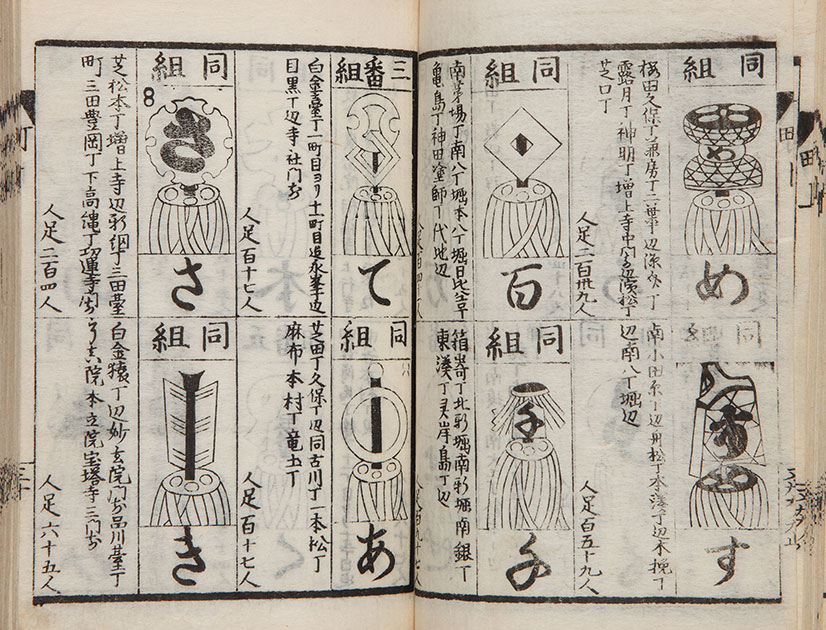 同組
め
桜田久保丁兼房丁二葉丁辺源助丁
露月丁神明丁増上寺中門前辺濱松丁
芝口丁
人足二百卅九人
同組
百
南茅場丁南八丁堀本八丁堀日比谷丁
亀島丁神田塗師丁代地辺
同組
す
南小田原丁辺舟松丁本湊丁辺木挽丁
辺南八丁堀辺
人足百五十九人
同組
千
箱崎丁北新堀南新堀南銀丁
東湊丁霊岸島丁辺
三番組
て
白金臺丁一町目ヨリ十一町目迄永峯辺
目黒丁辺寺社門前
人足百十七人
同組
さ
さ
芝松本丁増上寺辺新網丁三田臺
町三田豊岡丁下高縄丁功運寺門前
人足二百四人
同組
あ
芝田丁久保丁辺同古川丁一本松丁
麻布本村丁竜土丁
人足百十七人
同組
き
白金猿丁辺妙玄院門前品川臺丁
院本立院宝塔寺三門前
人足六十五人